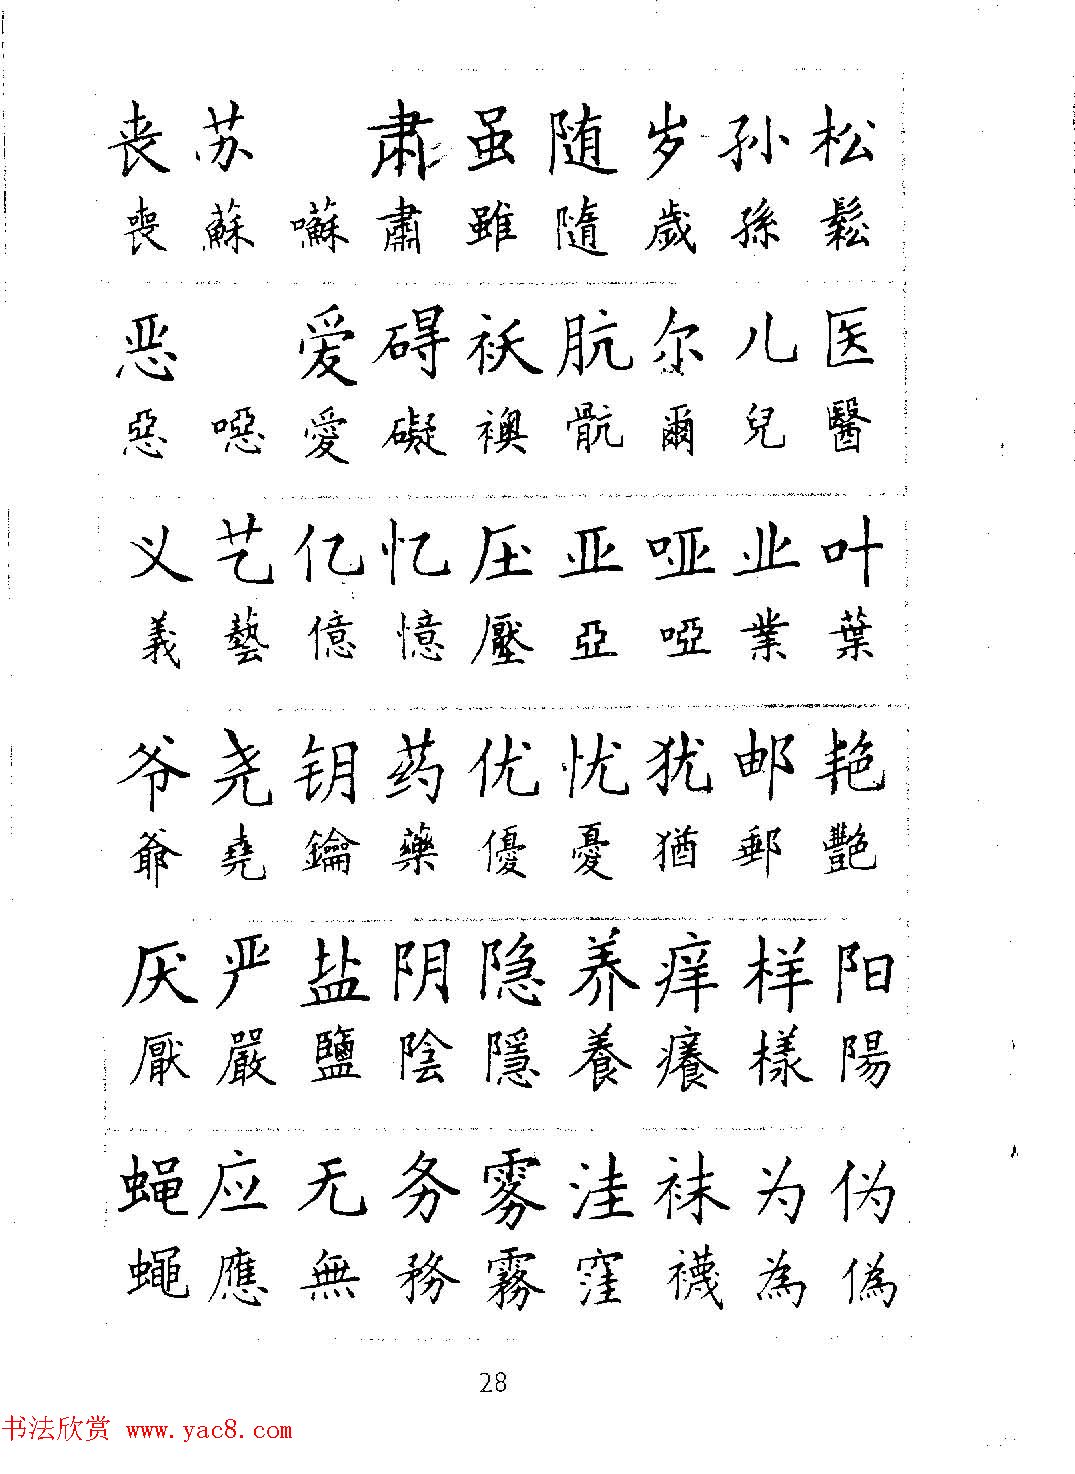 丧苏 肃虽随岁孙松
喪蘇囌肅雖隨歲孫鬆
恶 爱碍袄肮尔儿医
惡噁愛礙襖骯爾兒醫
义艺亿忆压亚哑业叶
義藝億憶壓亞啞業葉
爷尧钥药优忧犹邮艳
爺堯鑰藥優憂猶郵艷
厌严盐阴隐养痒样阳
厭嚴鹽陰隱養癢樣陽
蝇应无务雾洼袜为伪
蠅應無務霧窪襪為偽
28
书法欣赏 www.yac8.com